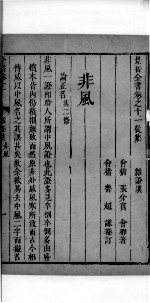 景岳全書卷之十一從集
雜證謨
會稽 張介賓 會卿著
會稽 魯超 謙菴訂
非風
論正名共二條
非風一證即時人所謂中風證也此證多見卒倒卒倒多由昏
憒本皆內傷積損頹敗而然原非外感風寒所致而古今相
傳咸以中風名之其誤甚矣故余欲易去中風二字而擬名